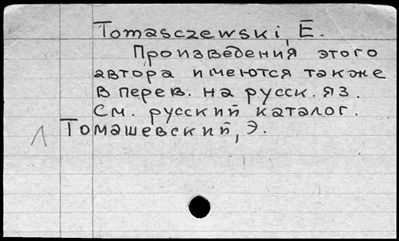 Tomasczewski, E.
Произведения этого
автора имеются также
в перев. на русск. яз.
См. русский каталог.
Томашевский, Э.